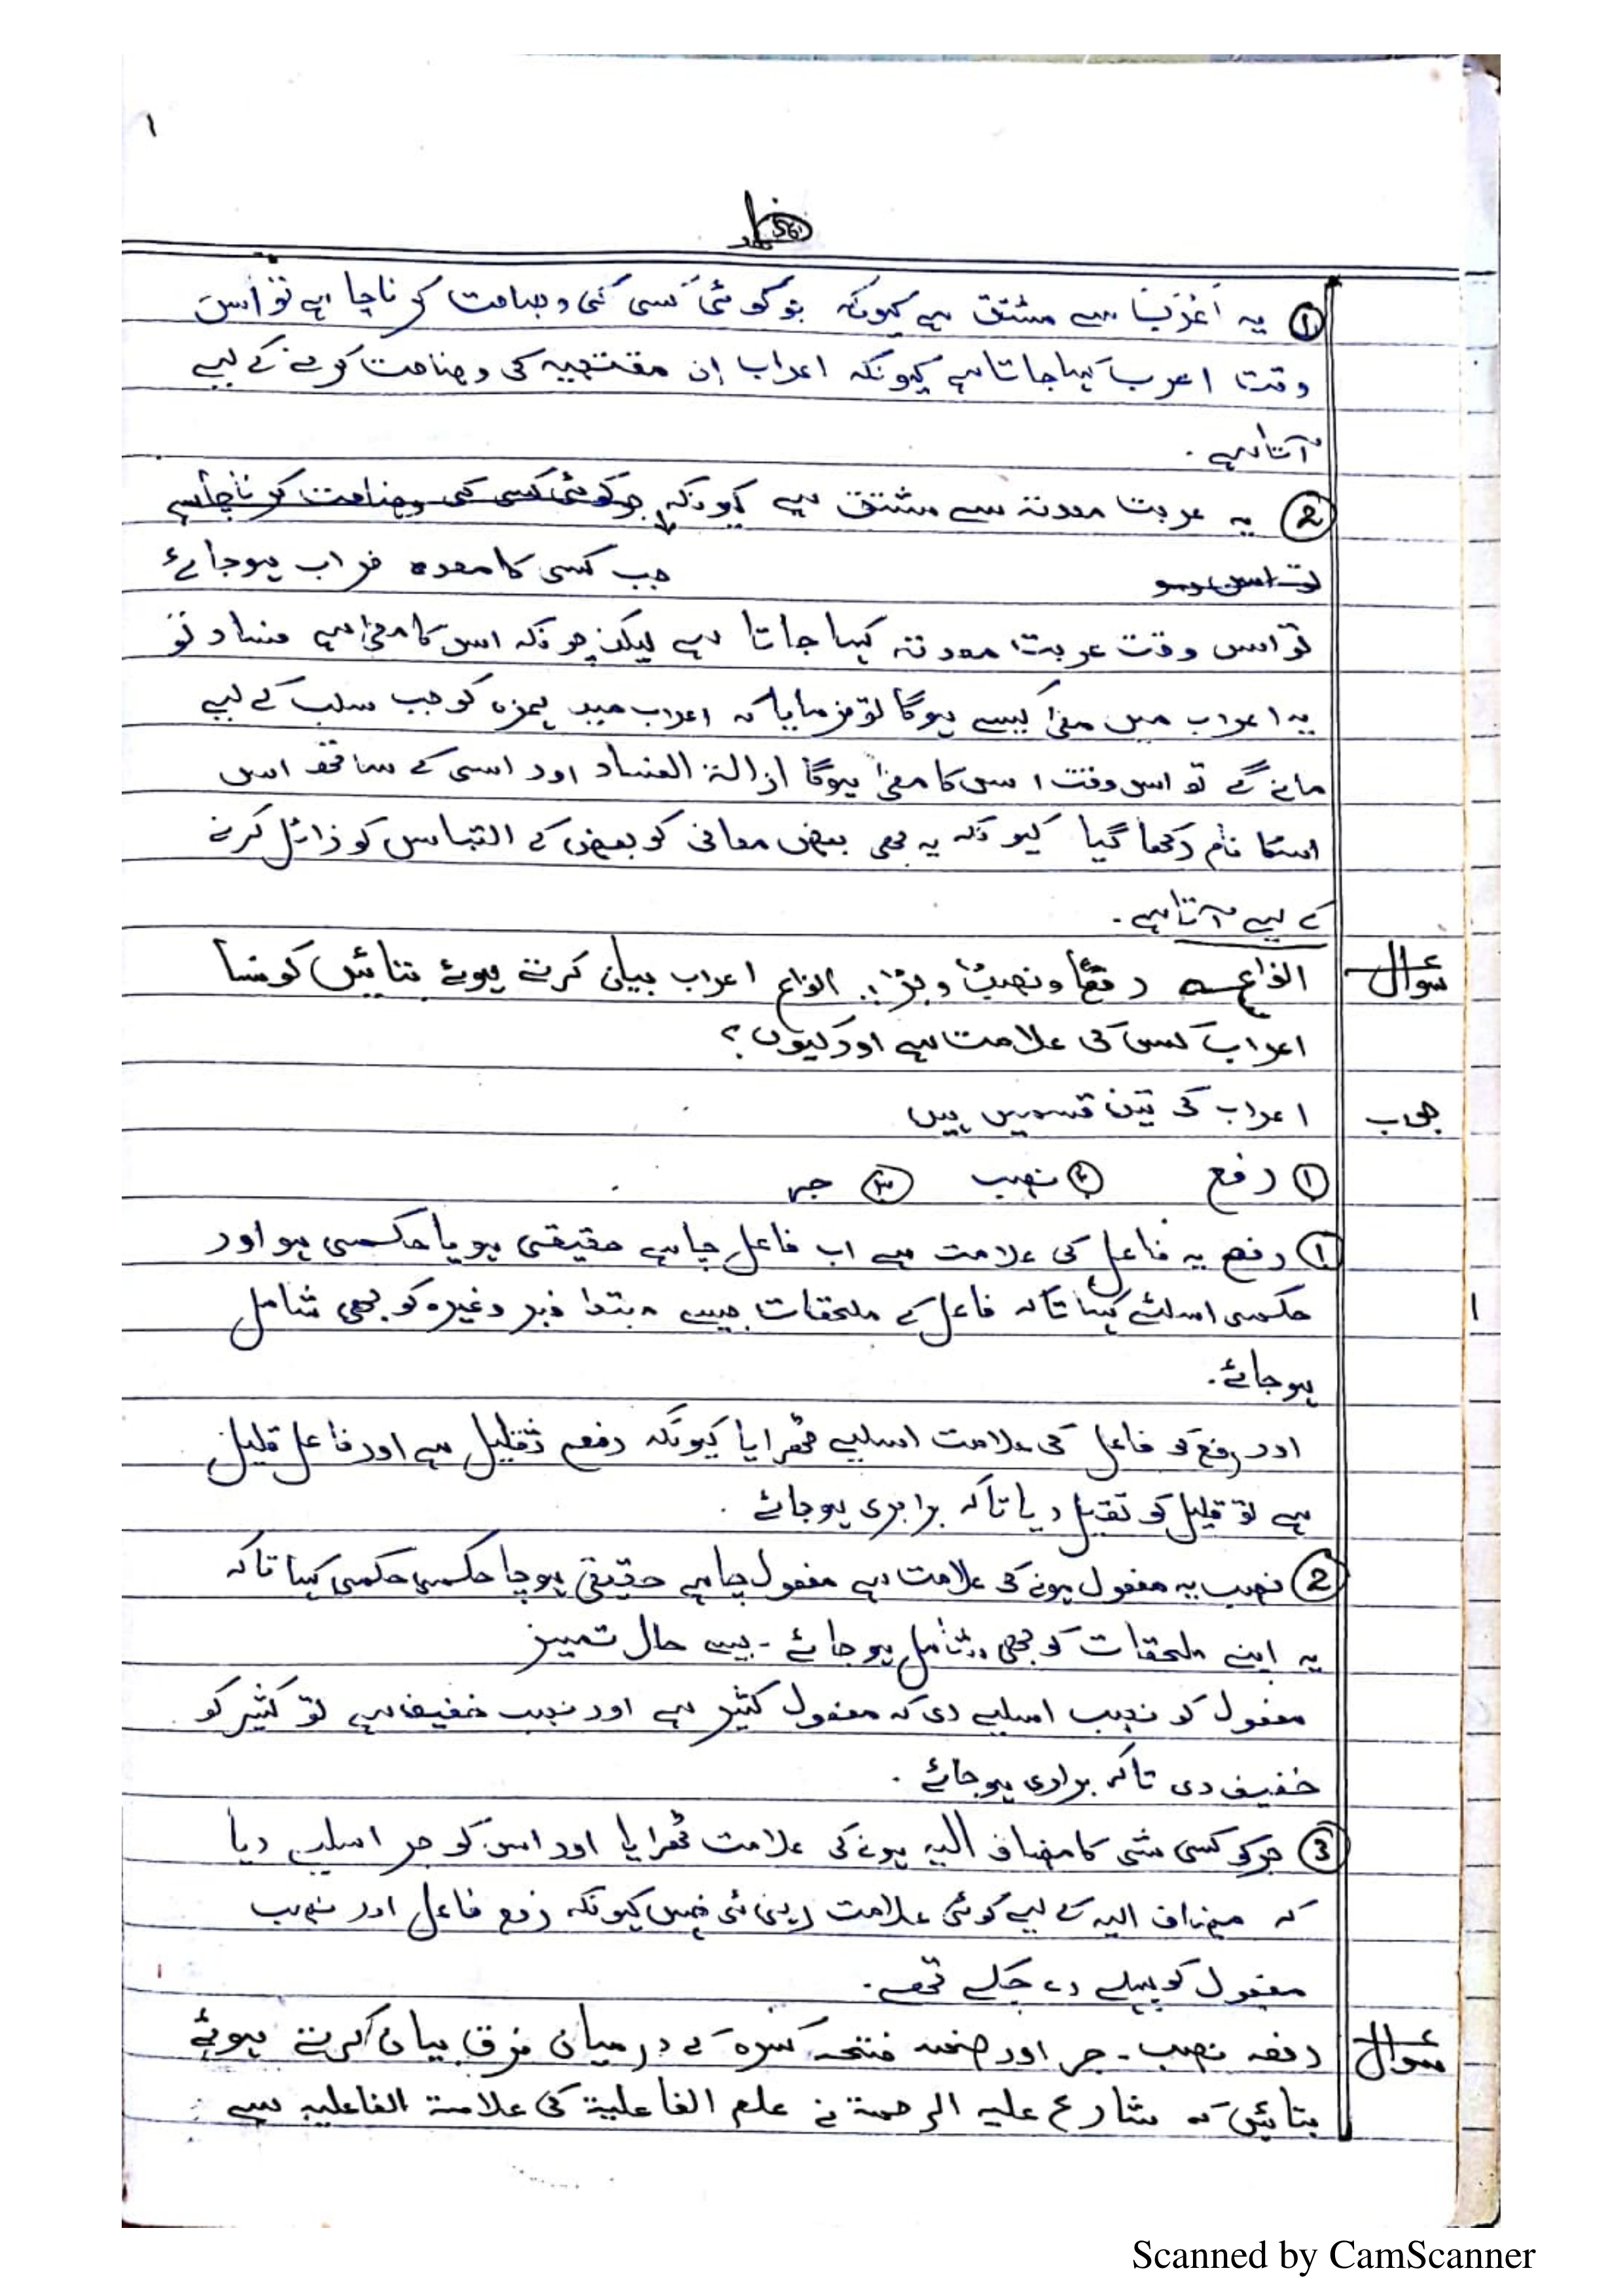 ۱
① یہ اَعْرَبَ سے مشتق ہے کیونکہ جو کوئی کسی کی وضاحت کرنا چاہے تو اس
وقت اعرب کہا جاتا ہے کیونکہ اعراب ان مقتضیہ کی وضاحت کرنے کے لیے
آتا ہے .
② یہ عربت معدتہ سے مشتق ہے کیونکہ جو کوئی کسی کی وضاحت کرنا چاہے
تو اس جب کسی کا معدہ خراب ہوجائے
تو اس وقت عربت معدتہ کہا جاتا ہے لیکن چونکہ اس کا معنیٰ ہے فساد تو
یہ اعراب میں معنیٰ کیسے ہوگا تو فرمایا کہ اعراب میں ہمزہ کو جب سلب کے لیے
مانے گے تو اس وقت اس کا معنیٰ ہوگا ازالۃ الفساد اور اسی کے ساتھ اس
اسکا نام رکھا گیا کیونکہ یہ بھی بعض معانی کو بعض کے التباس کو زائل کرنے
کے لیے آتا ہے .
سوال انواعہ رفعًا و نصبًا و جرًا : انواع اعراب بیان کرتے ہوئے بتائیں کونسا
اعراب کس کی علامت ہے اور کیوں ؟
جواب اعراب کی تین قسمیں ہیں
① رفع ② نصب ③ جر
① رفع یہ فاعل کی علامت ہے اب فاعل چاہے حقیقی ہو یا حکمی ہو اور
حکمی اسلئے کہا تاکہ فاعل کے ملحقات جیسے مبتدا خبر وغیرہ کو بھی شامل
ہوجائے .
اور رفع کو فاعل کی علامت اسلیے ٹھرایا کیونکہ رفع ثقیل ہے اور فاعل قلیل
ہے تو قلیل کو ثقیل دیا تاکہ برابری ہوجائے .
② نصب یہ مفعول ہونے کی علامت ہے مفعول چاہے حقیقی ہو چا حکمی حکمی کہا تاکہ
یہ اپنے ملحقات کو بھی شامل ہوجائے - جیسے حال تمییز
مفعول کو نصب اسلیے دی کہ مفعول کثیر ہے اور نصب خفیف ہے تو کثیر کو
خفیف دی تاکہ برابری ہوجائے .
③ جر کو کسی شی کا مضاف الیہ ہونے کی علامت ٹھرایا اور اس کو جر اسلیے دیا
کہ مضاف الیہ کے لیے کوئی علامت نہیں کیونکہ رفع فاعل اور نصب
مفعول کو پہلے دے چکے تھے .
سوال رفعہ نصب - جر اور ضمہ فتحہ کسرہ کے درمیان فرق بیان کرتے ہوئے
بتائیں کہ شارح علیہ الرحمۃ نے علم الفاعلیۃ کی علامۃ الفاعلیہ سے
Scanned by CamScanner